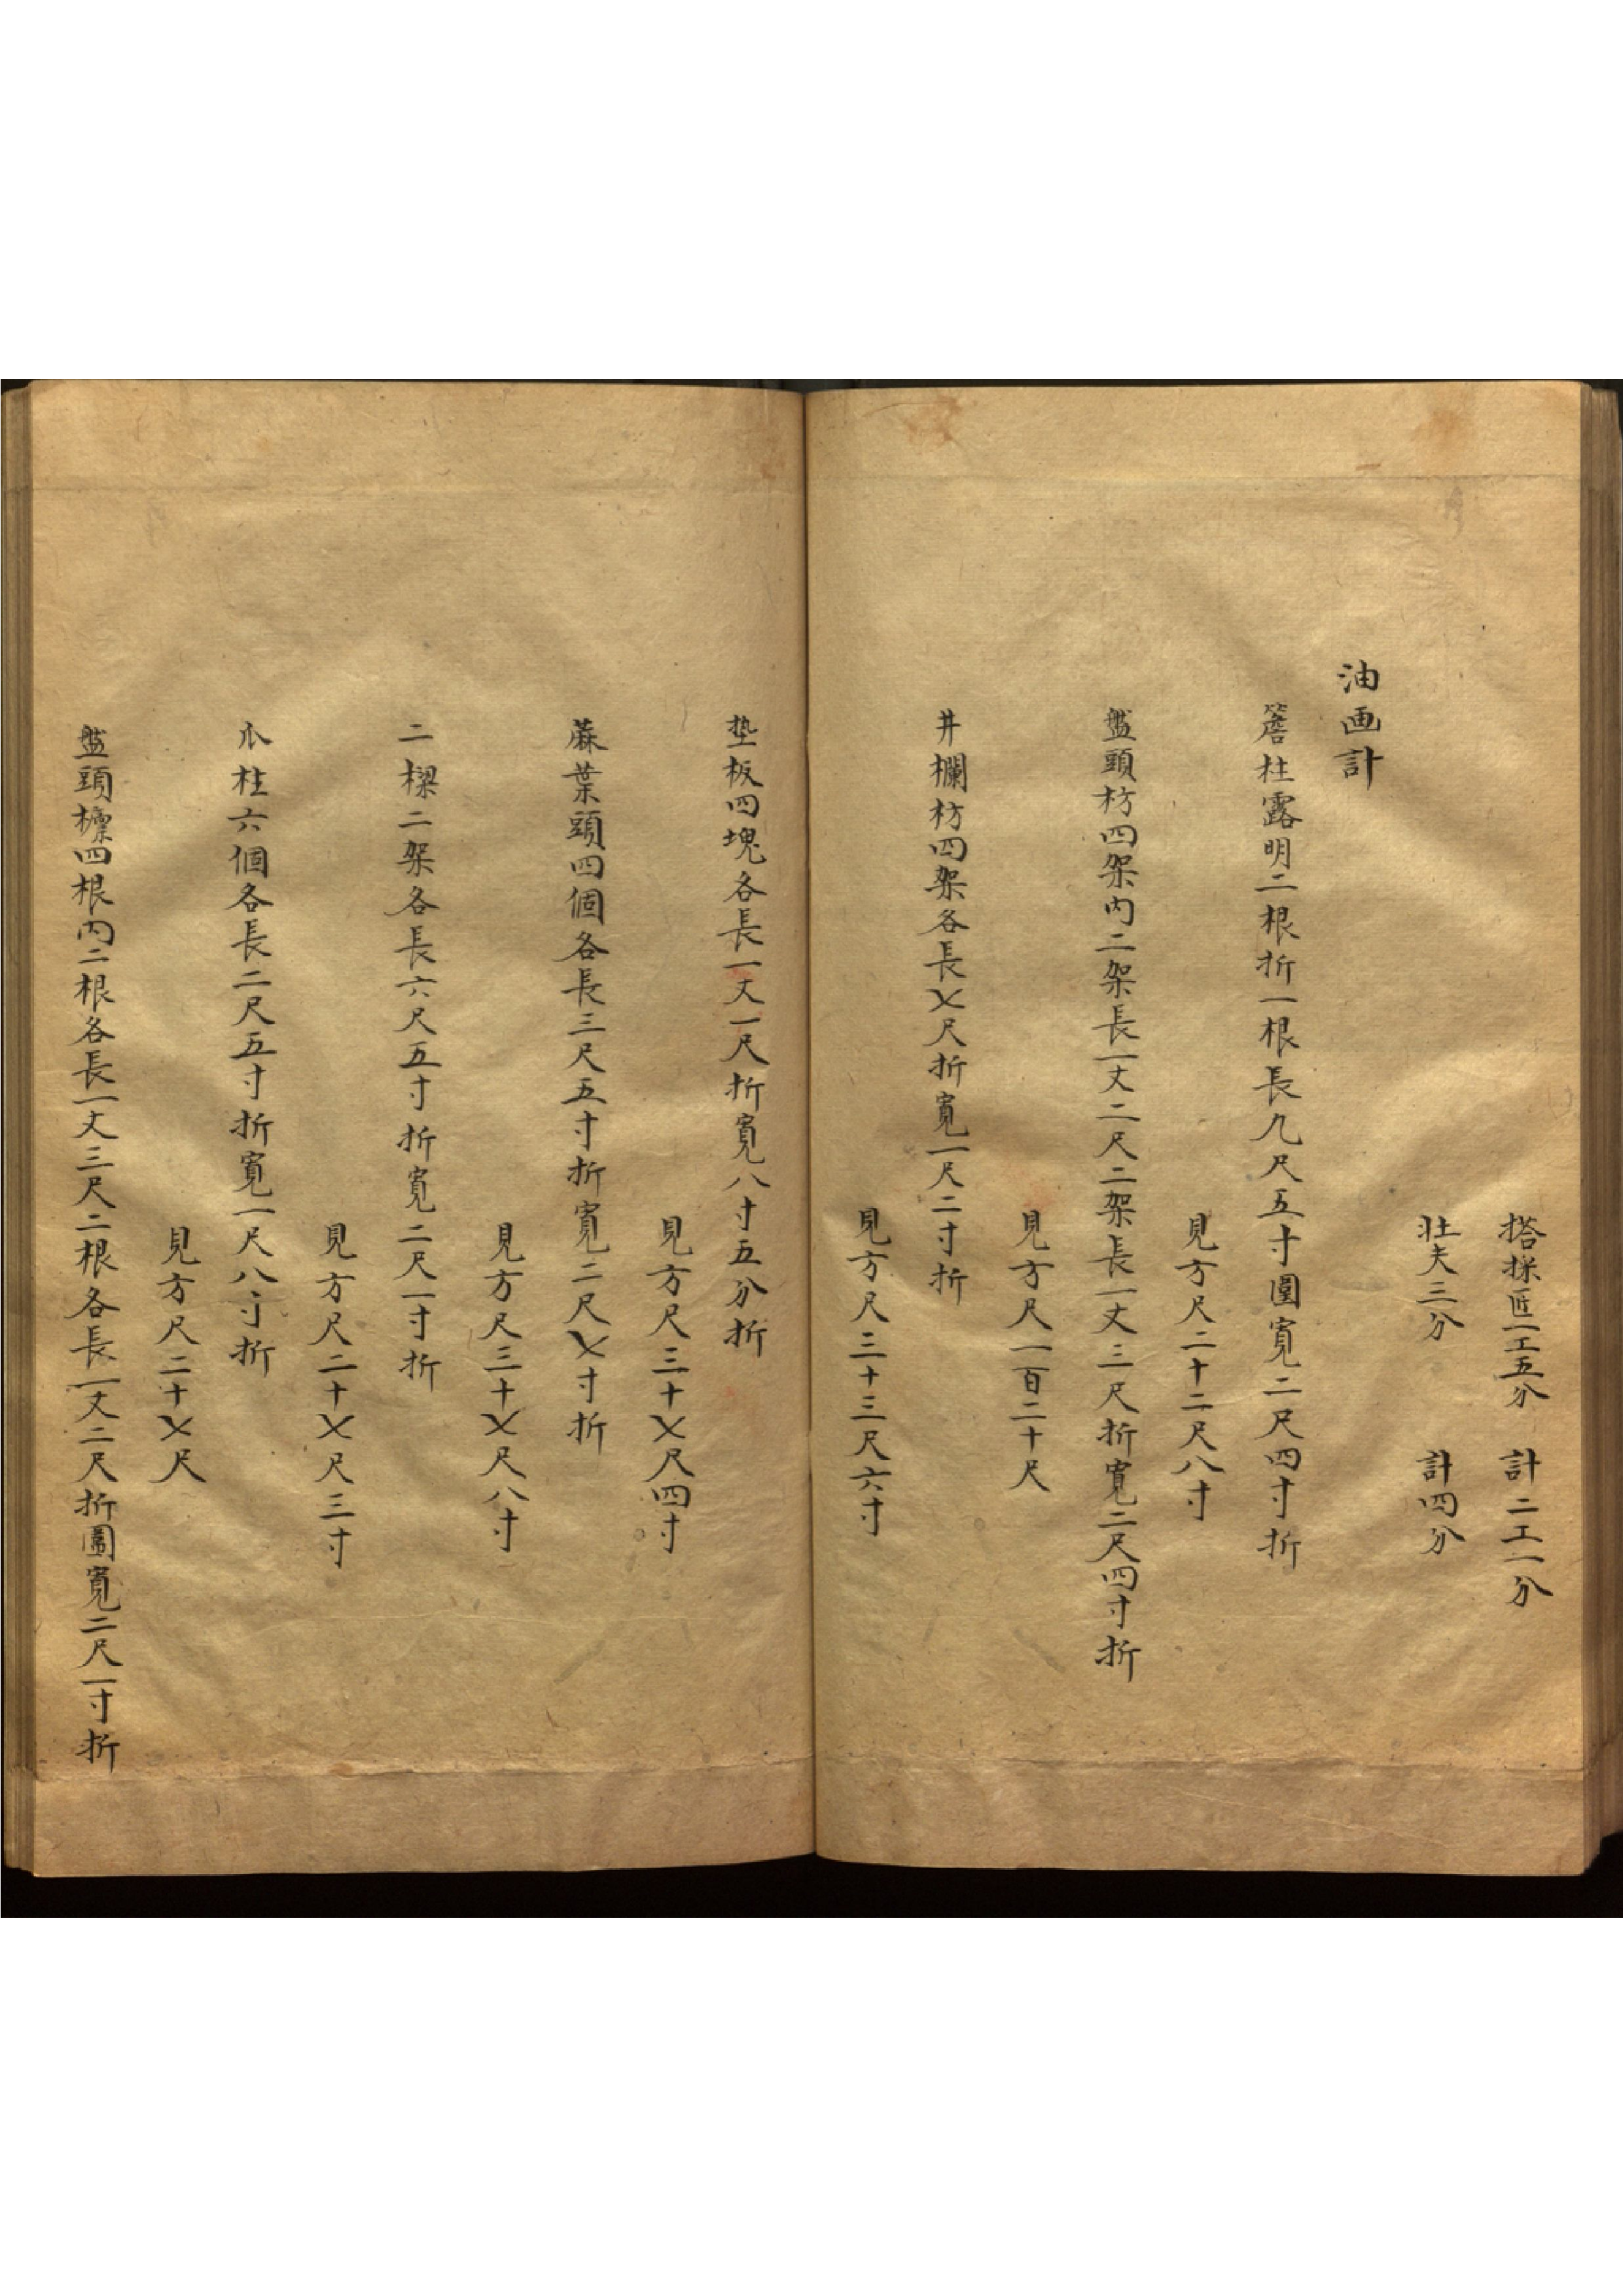 搭採匠一工五分　計二工一分
壮夫三分　計四分
油画計
簷柱露明二根折一根長九尺五寸圍寬二尺四寸折
見方尺二十二尺八寸
盤頭枋四架内二架長一丈二尺二架長一丈三尺折寬二尺四寸折
見方尺一百二十尺
井欄枋四架各長乂尺折寬一尺二寸折
見方尺三十三尺六寸
墊板四塊各長一丈一尺折寬八寸五分折
見方尺三十乂尺四寸
蔴葉頭四個各長三尺五寸折寬二尺乂寸折
見方尺三十乂尺八寸
二樑二架各長六尺五寸折寬二尺一寸折
見方尺二十乂尺三寸
爪柱六個各長二尺五寸折寬一尺八寸折
見方尺二十乂尺
盤頭檩四根内二根各長一丈三尺二根各長一丈二尺折圍寬二尺一寸折